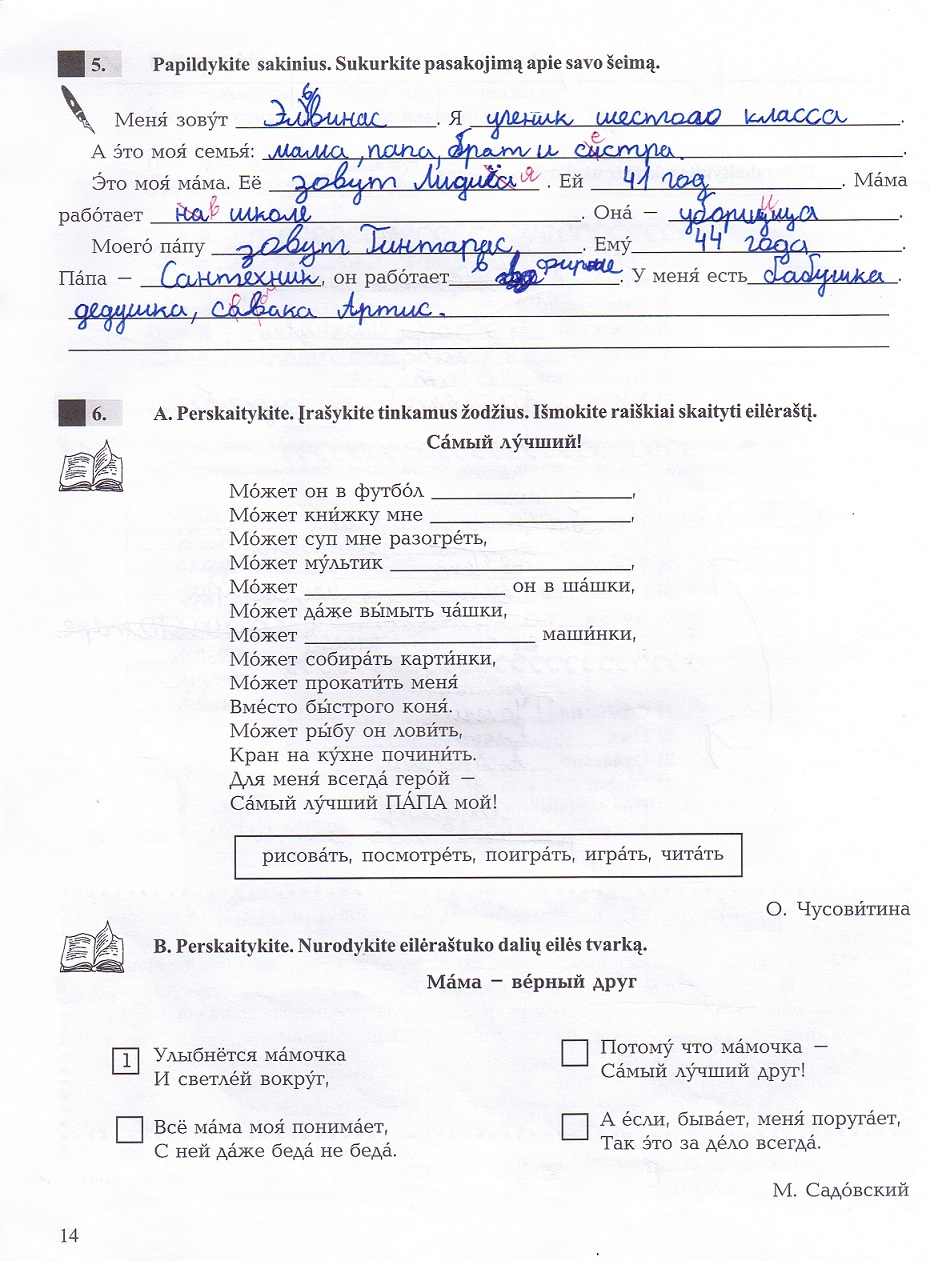 5. Papildykite sakinius. Sukurkite pasakojimą apie savo šeimą.
Меня́ зову́т Эльвинас. Я ученик шестого класса.
А э́то моя́ семья́: мама, папа, брат и сестра.
Э́то моя́ ма́ма. Её зовут Лидия. Ей 41 год. Ма́ма
рабо́тает в школе. Она́ – уборщица.
Моего́ па́пу зовут Гинтарас. Ему́ 44 года.
Па́па – Сантехник, он рабо́тает в фирме. У меня́ есть бабушка.
дедушка, собака Артис.
6. A. Perskaitykite. Įrašykite tinkamus žodžius. Išmokite raiškiai skaityti eilėraštį.
Са́мый лу́чший!
Мо́жет он в футбо́л ____________,
Мо́жет кни́жку мне ____________,
Мо́жет суп мне разогре́ть,
Мо́жет му́льтик ____________,
Мо́жет ____________ он в ша́шки,
Мо́жет да́же вы́мыть ча́шки,
Мо́жет ____________ маши́нки,
Мо́жет собира́ть карти́нки,
Мо́жет прокати́ть меня́
Вме́сто бы́строго коня́.
Мо́жет ры́бу он лови́ть,
Кран на ку́хне почини́ть.
Для меня́ всегда́ геро́й –
Са́мый лу́чший ПА́ПА мой!
рисова́ть, посмотре́ть, поигра́ть, игра́ть, чита́ть
О. Чусови́тина
B. Perskaitykite. Nurodykite eilėraštuko dalių eilės tvarką.
Ма́ма – ве́рный друг
1 Улыбнётся ма́мочка
И светле́й вокру́г,
Всё ма́ма моя́ понима́ет,
С ней да́же беда́ не беда́.
Потому́ что ма́мочка –
Са́мый лу́чший друг!
А е́сли, быва́ет, меня́ поруга́ет,
Так э́то за де́ло всегда́.
М. Садо́вский
14